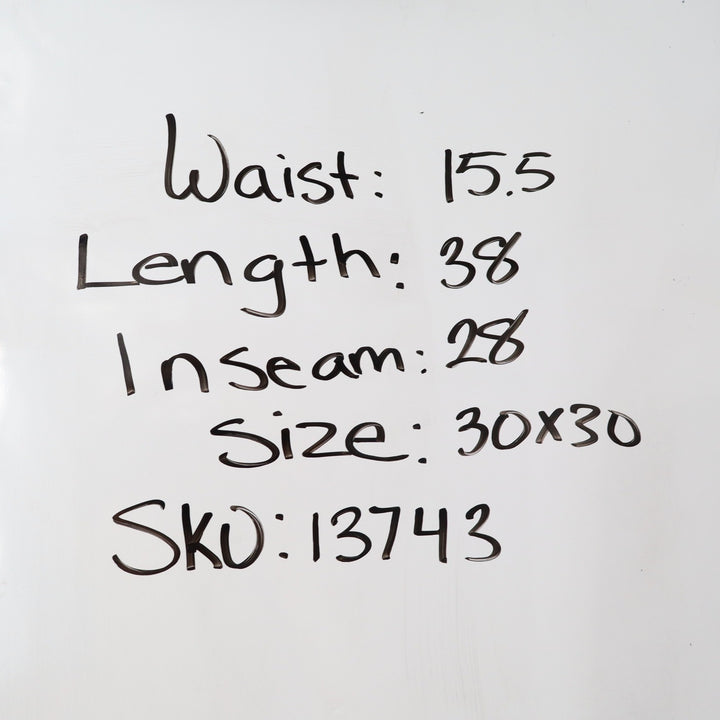 Waist: 15.5
Length: 38
Inseam: 28
Size: 30x30
SKU: 13743